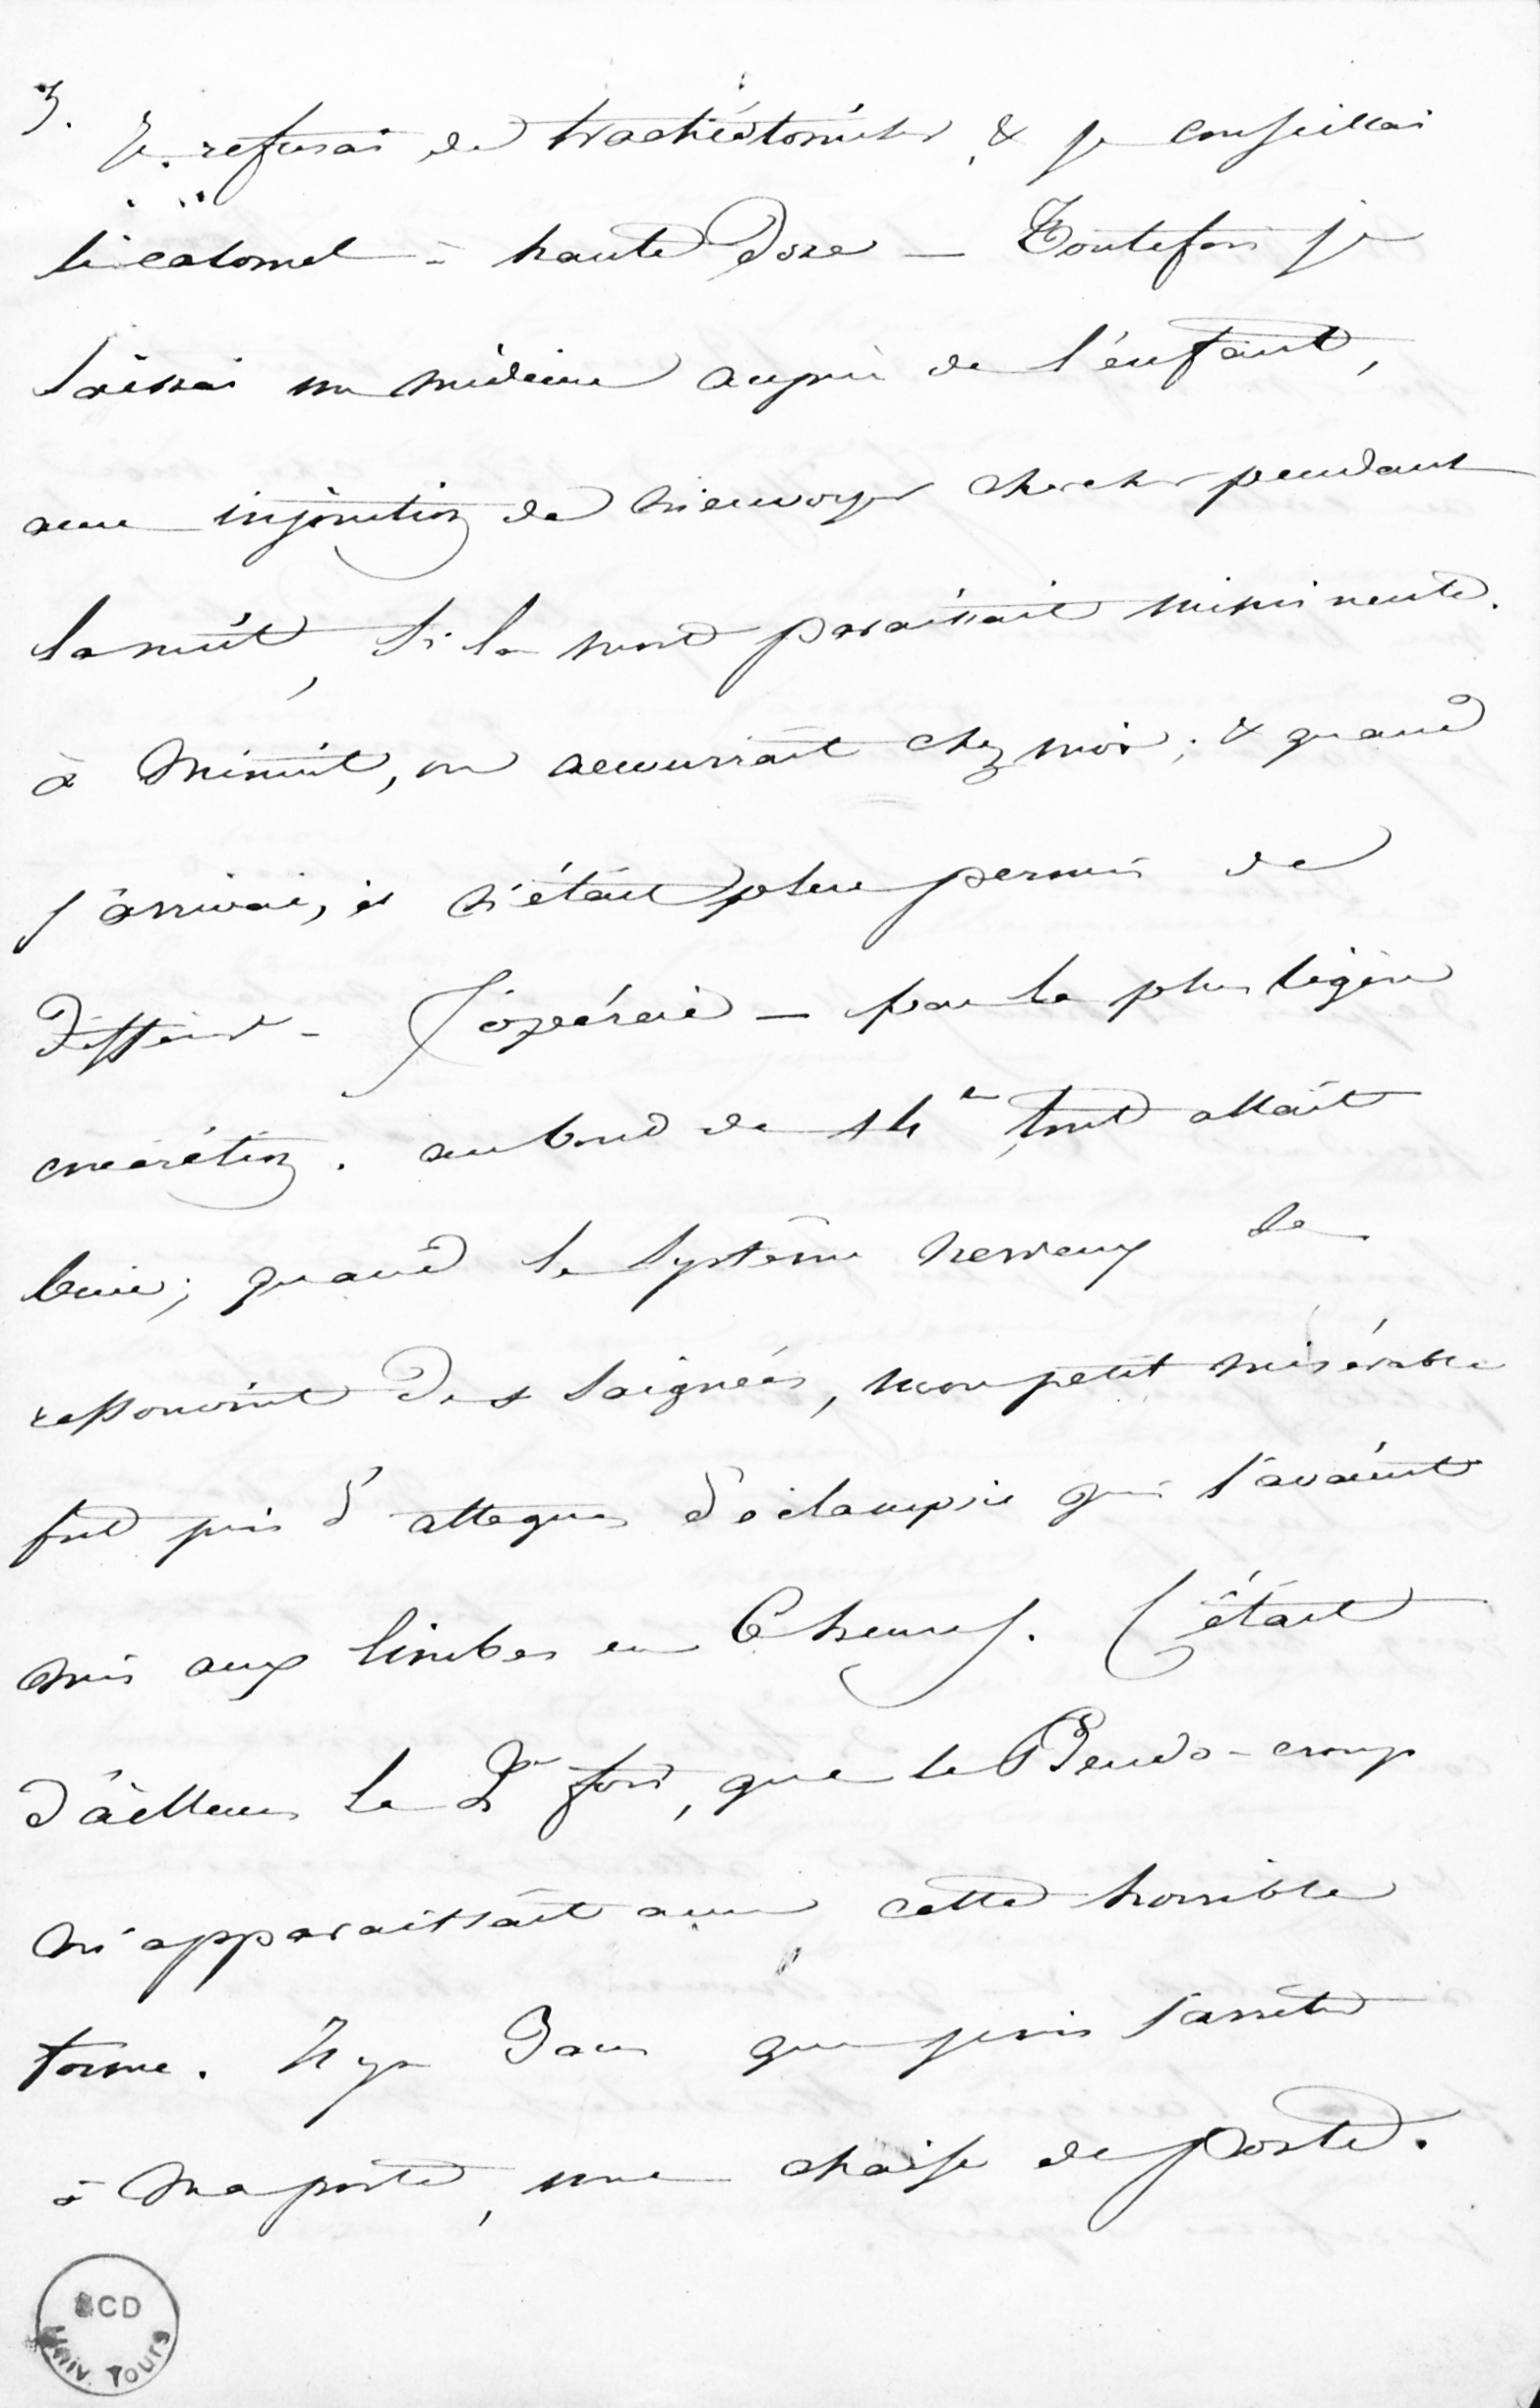 3.
Je refusai de trachéotomiser, & je conseillai
le calomel à haute dose — Toutefois je
laissai un médecin auprès de l'enfant,
avec injonction de m'envoyer chercher pendant
la nuit, si la mort paraissait imminente.
à minuit, on accourrait chez moi; & quand
j'arrivai, il n'était plus permis de
différer — J'opérai — pas la plus légère
concrétion. au bout de 14 h tout allait
bien; quand le système nerveux se
ressouvint des saignées, mon petit misérable
fut pris d'attaques d'éclampsie qui l'avaient
mis aux limbes en 6 heures. C'était
d'ailleurs la 2e fois, que le Pseudo-croup
m'apparaissait avec cette horrible
forme. Il y a 3 ans que je vis s'arrêter
à ma porte, une chaise de poste.
BCD
Univ. Tours